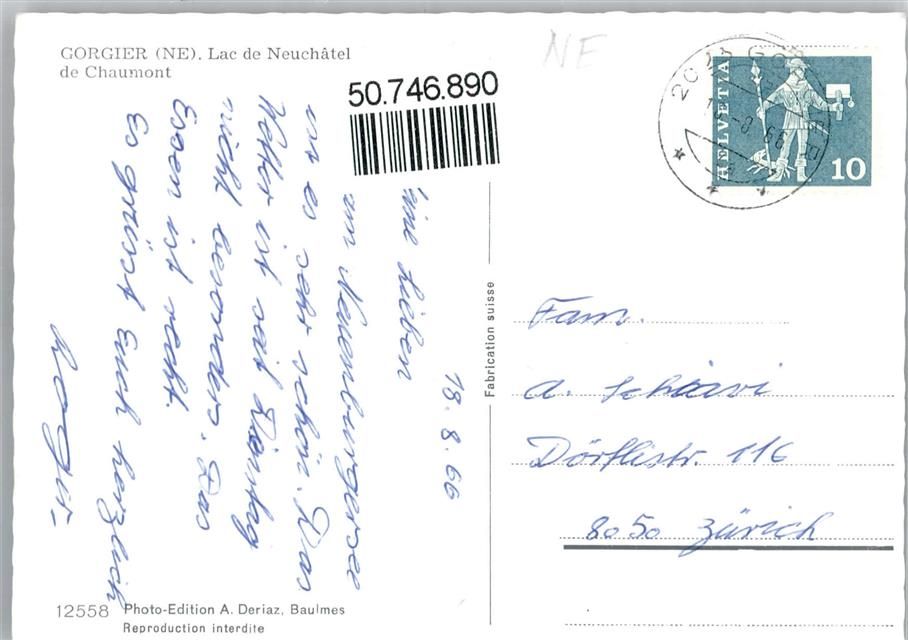 GORGIER (NE). Lac de Neuchâtel
de Chaumont
NE
50.746.890
HELVETIA
10
18.8.66
Meine Lieben
am Neuenburgersee
ist es sehr schön. Das
Wetter ist seit Dienstag
nicht besonders. Das
Essen ist recht.
Es grüsst Euch herzlich
Fabrication suisse
Fam.
A. Schiavi
Dörflistr. 116
8050 Zürich
12558 Photo-Edition A. Deriaz, Baulmes
Reproduction interdite